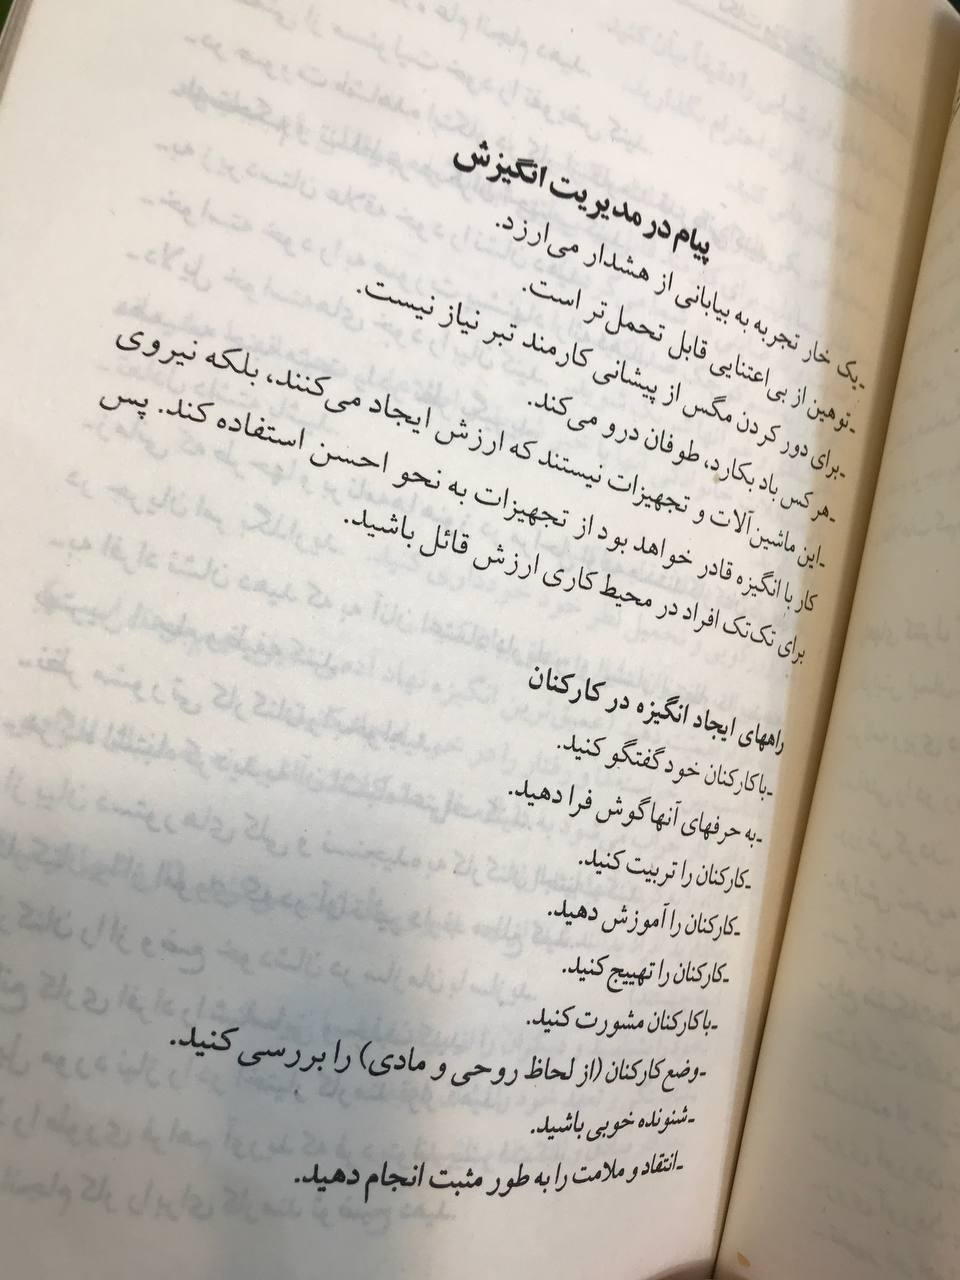 پیام در مدیریت انگیزش
-یک خار تجربه به بیابانی از هشدار می‌ارزد.
-توهین از بی‌اعتنایی قابل تحمل‌تر است.
-برای دور کردن مگس از پیشانی کارمند تبر نیاز نیست.
-هر کس باد بکارد، طوفان درو می‌کند.
-این ماشین‌آلات و تجهیزات نیستند که ارزش ایجاد می‌کنند، بلکه نیروی
کار با انگیزه قادر خواهد بود از تجهیزات به نحو احسن استفاده کند. پس
برای تک‌تک افراد در محیط کاری ارزش قائل باشید.
راههای ایجاد انگیزه در کارکنان
-با کارکنان خود گفتگو کنید.
-به حرفهای آنها گوش فرا دهید.
-کارکنان را تربیت کنید.
-کارکنان را آموزش دهید.
-کارکنان را تهییج کنید.
-با کارکنان مشورت کنید.
-وضع کارکنان (از لحاظ روحی و مادی) را بررسی کنید.
-شنونده خوبی باشید.
-انتقاد و ملامت را به طور مثبت انجام دهید.